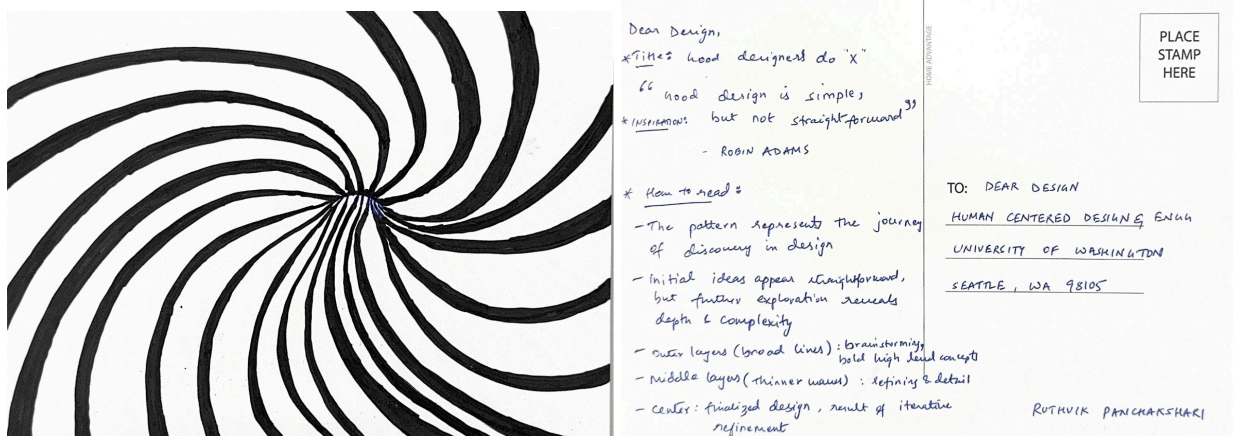 Dear Design,
* Title: Good designers do "X"
"Good design is simple,
* INSPIRATION: but not straightforward"
- ROBIN ADAMS
* How to read:
- The pattern represents the journey
of discovery in design
- Initial ideas appear straightforward,
but further exploration reveals
depth & complexity
- outer layers (broad lines) : brainstorming,
bold high level concepts
- Middle layers (thinner waves) : refining & detail
- center : finalized design, result of iterative
refinement
HOME ADVANTAGE
PLACE
STAMP
HERE
TO: DEAR DESIGN
HUMAN CENTERED DESIGN & ENGG
UNIVERSITY OF WASHINGTON
SEATTLE, WA 98105
RUTHVIK PANCHAKSHARI